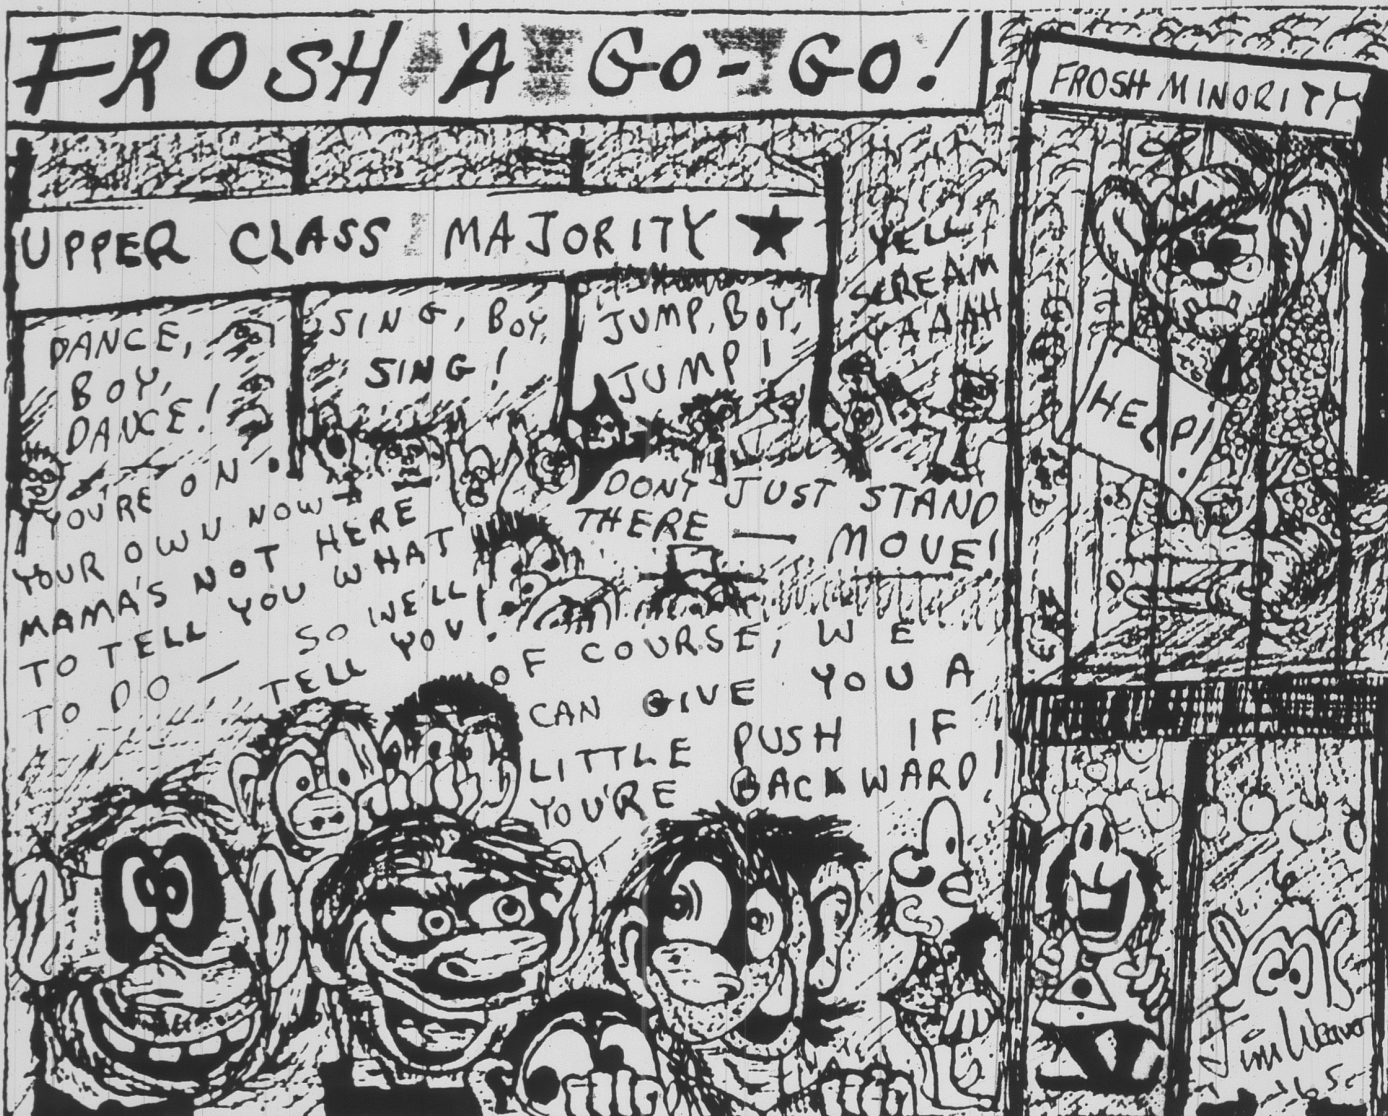 FROSH 'A GO-GO!
UPPER CLASS MAJORITY ★
DANCE,
BOY,
DANCE!
SING, BOY,
SING!
JUMP, BOY,
JUMP!
YELL
SCREAM
YAAAH
YOU'RE ON
YOUR OWN NOW
MAMA'S NOT HERE
TO TELL YOU WHAT
TO DO — SO WE'LL
TELL YOU!
DONT JUST STAND
THERE — MOVE!
OF COURSE, WE
CAN GIVE YOU A
LITTLE PUSH IF
YOU'RE BACKWARD!
FROSH MINORITY
HELP!
Jim